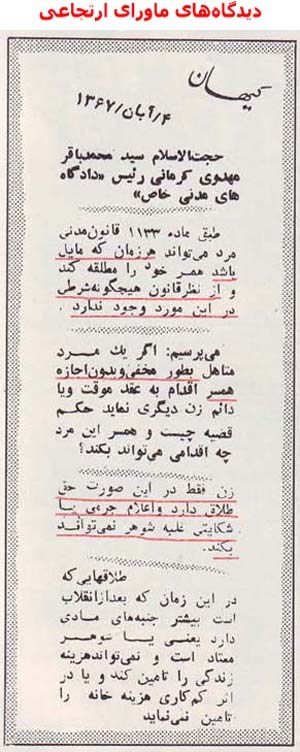 دیدگاه‌های ماورای ارتجاعی
کیهان
۴/آبان/۱۳۶۷
حجت‌الاسلام سید محمدباقر
مهدوی کرمانی رئیس «دادگاه
های مدنی خاص»
طبق ماده ۱۱۳۳ قانون‌مدنی
مرد می‌تواند هرزمان که مایل
باشد همسر خود را مطلقه کند
و از نظر قانون هیچگونه‌شرطی
در این مورد وجود ندارد .
می‌پرسیم: اگر یك مرد
متاهل بطور مخفی‌وبدون‌اجازه
همسر اقدام به عقد موقت ویا
دائم زن دیگری نماید حکم
قضیه چیست و همسر این مرد
چه اقدامی می‌تواند بکند؟
زن فقط در این صورت حق
طلاق دارد واعلام جرمی یا
شکایتی علیه شوهر نمی‌توانند
بکند.
طلاقهایی‌که
در این زمان که بعدازانقلاب
است بیشتر جنبه‌های مادی
دارد یعنی یا شوهر
معتاد است و نمی‌تواندهزینه
زندگی را تامین کند و یا در
اثر کم‌کاری هزینه خانه را
تامین نمی‌نماید